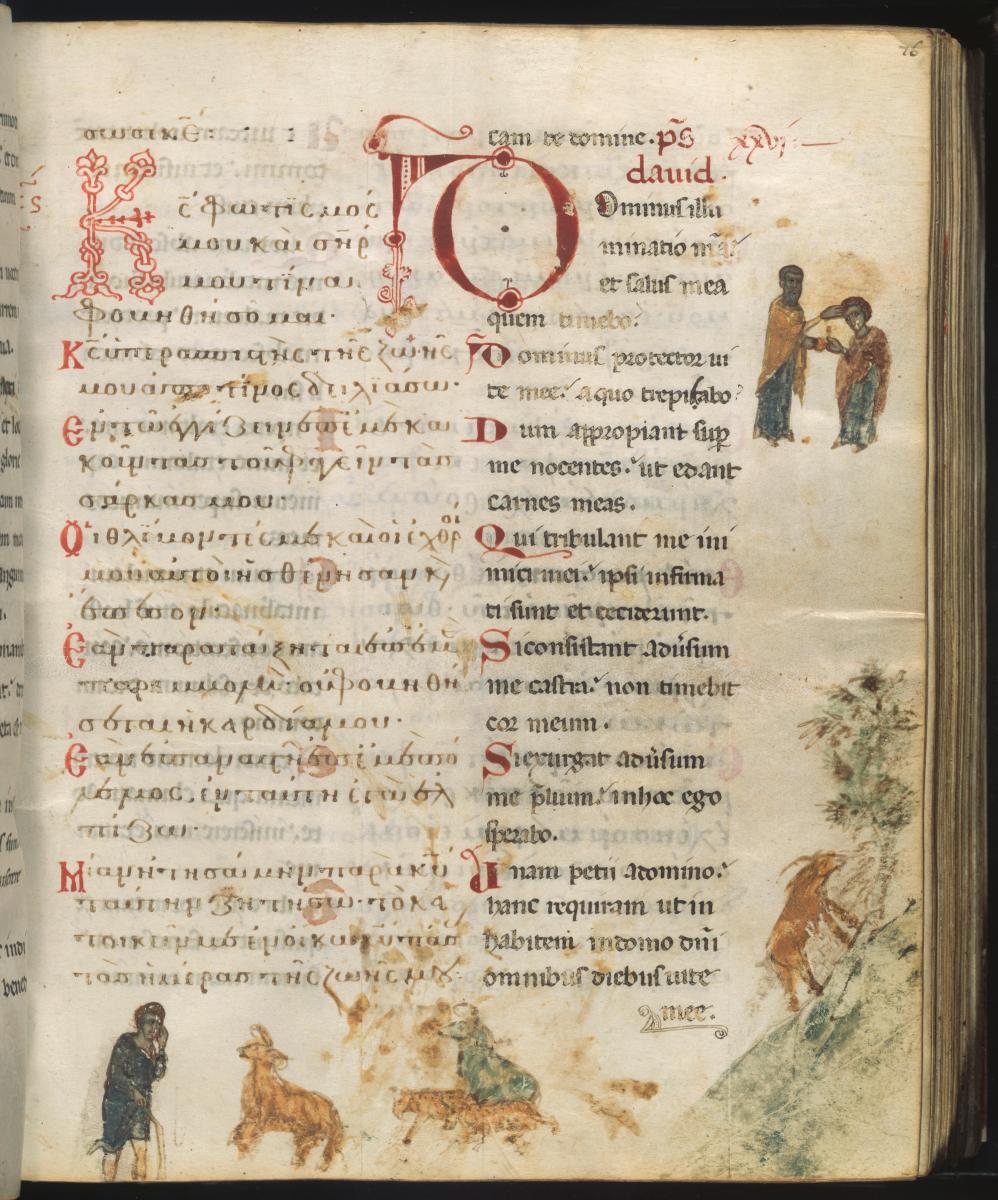 Κς φωτισμος
μου και σηρ
μου τινα
φοβηθησομαι·
Κς υπερασπιστης της ζωης
μου απο τινος διλιασω·
Εν τω εγγιζειν επ εμε κα
κουντας του φαγειν τας
σαρκας μου·
Οι θλιβοντες με και οι εχθροι
μου αυτοι ησθενησαν κ
επεσον·
Εαν παραταξηται επ εμε
παρεμβολη ου φοβηθη
σεται η καρδια μου·
Εαν επαναστη επ εμε πο
λεμος, εν ταυτη εγω ελ
πιζω·
Μιαν ητησαμην παρα κυ
ταυτην εκζητησω· το κα
τοικειν με εν οικω κυ πασας
τας ημερας της ζωης μου
cam te domine. ps xxvi
dauid.
Dominus illu
minatio mea
et salus mea
quem timebo.
Dominus protector ui
te mee. a quo trepidabo
Dum appropiant sup
me nocentes. ut edant
carnes meas.
Qui tribulant me ini
mici mei. ipsi infirma
ti sunt et ceciderunt.
Si consistant aduersum
me castra. non timebit
cor meum.
Si exurgat aduersum
me plium. in hoc ego
sperabo.
Unam petii a domino.
hanc requiram ut in
habitem in domo dni
omnibus diebus uite
mee.